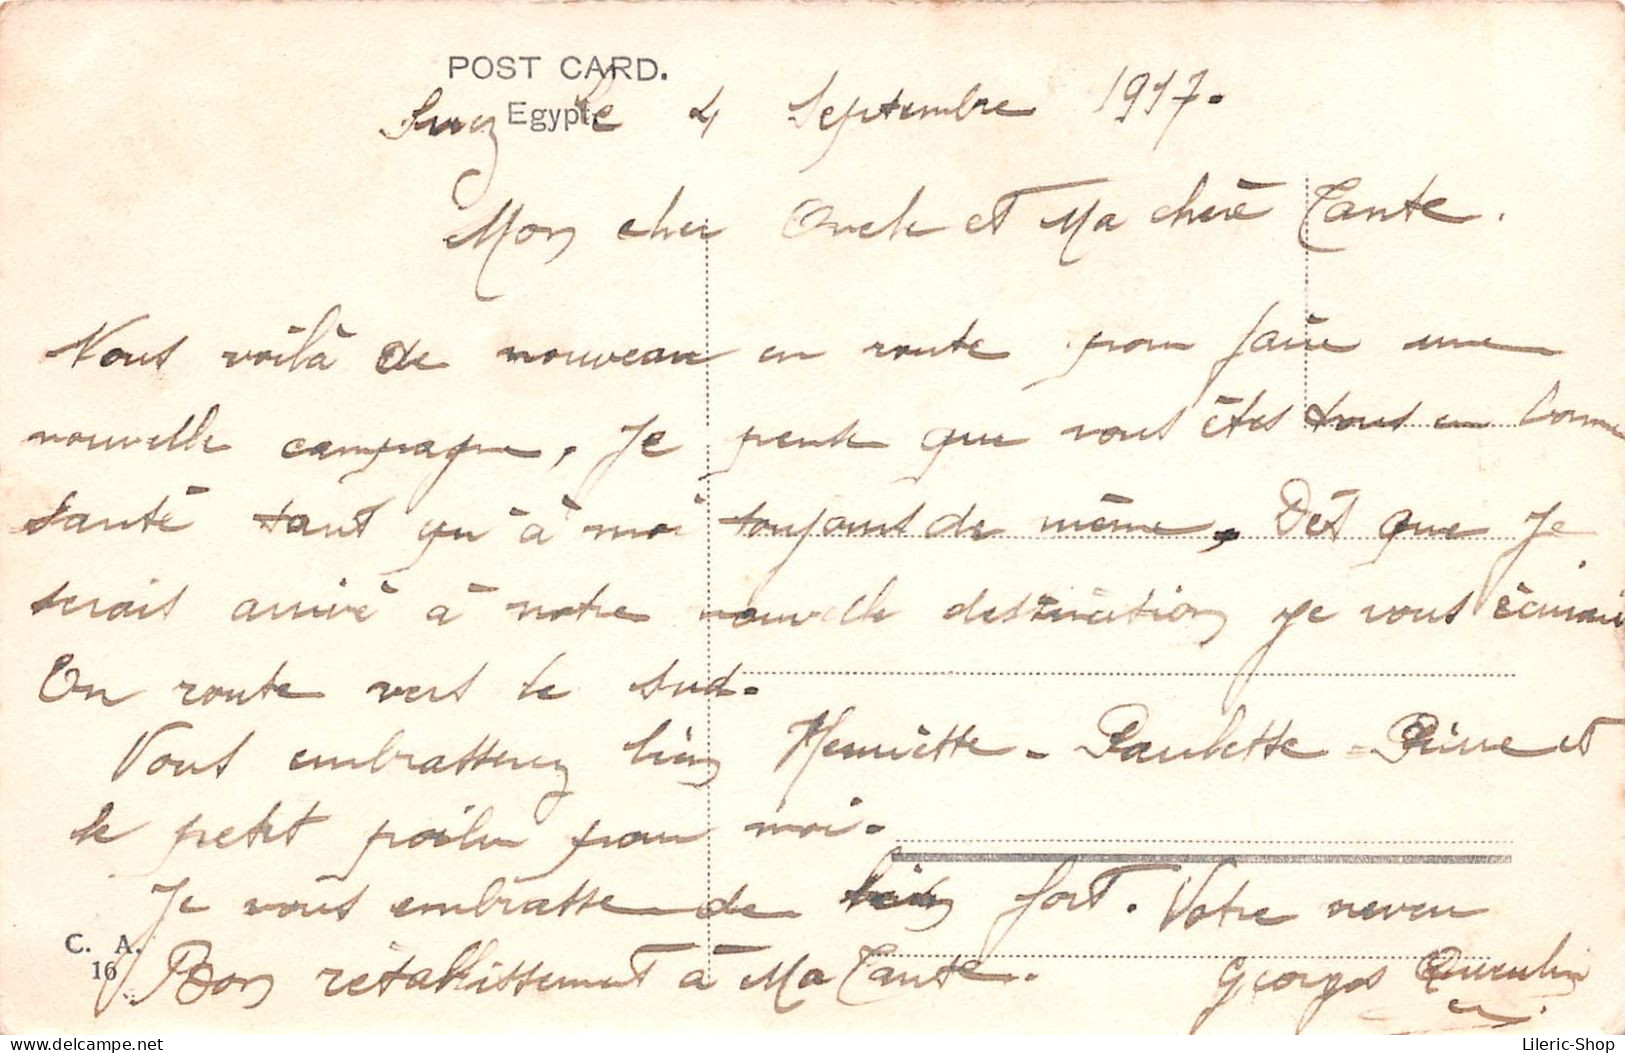 POST CARD.
Egypte
Suez le 4 Septembre 1917.
Mon cher Oncle et Ma chère Tante.
Nous voilà de nouveau en route pour faire une
nouvelle campagne, Je pense que vous êtes tous en bonne
santé tant qu'à moi toujours de même, Dès que Je
serais arrivé à notre nouvelle destination je vous écrirais
En route vers le sud.
Vous embrasserez bien Henriette - Paulette - Pierre et
le petit poilu pour moi.
Je vous embrasse de bien fort. Votre neveu
C. A.
16
Bon rétablissement à Ma Tante. Georges
Lileric-Shop